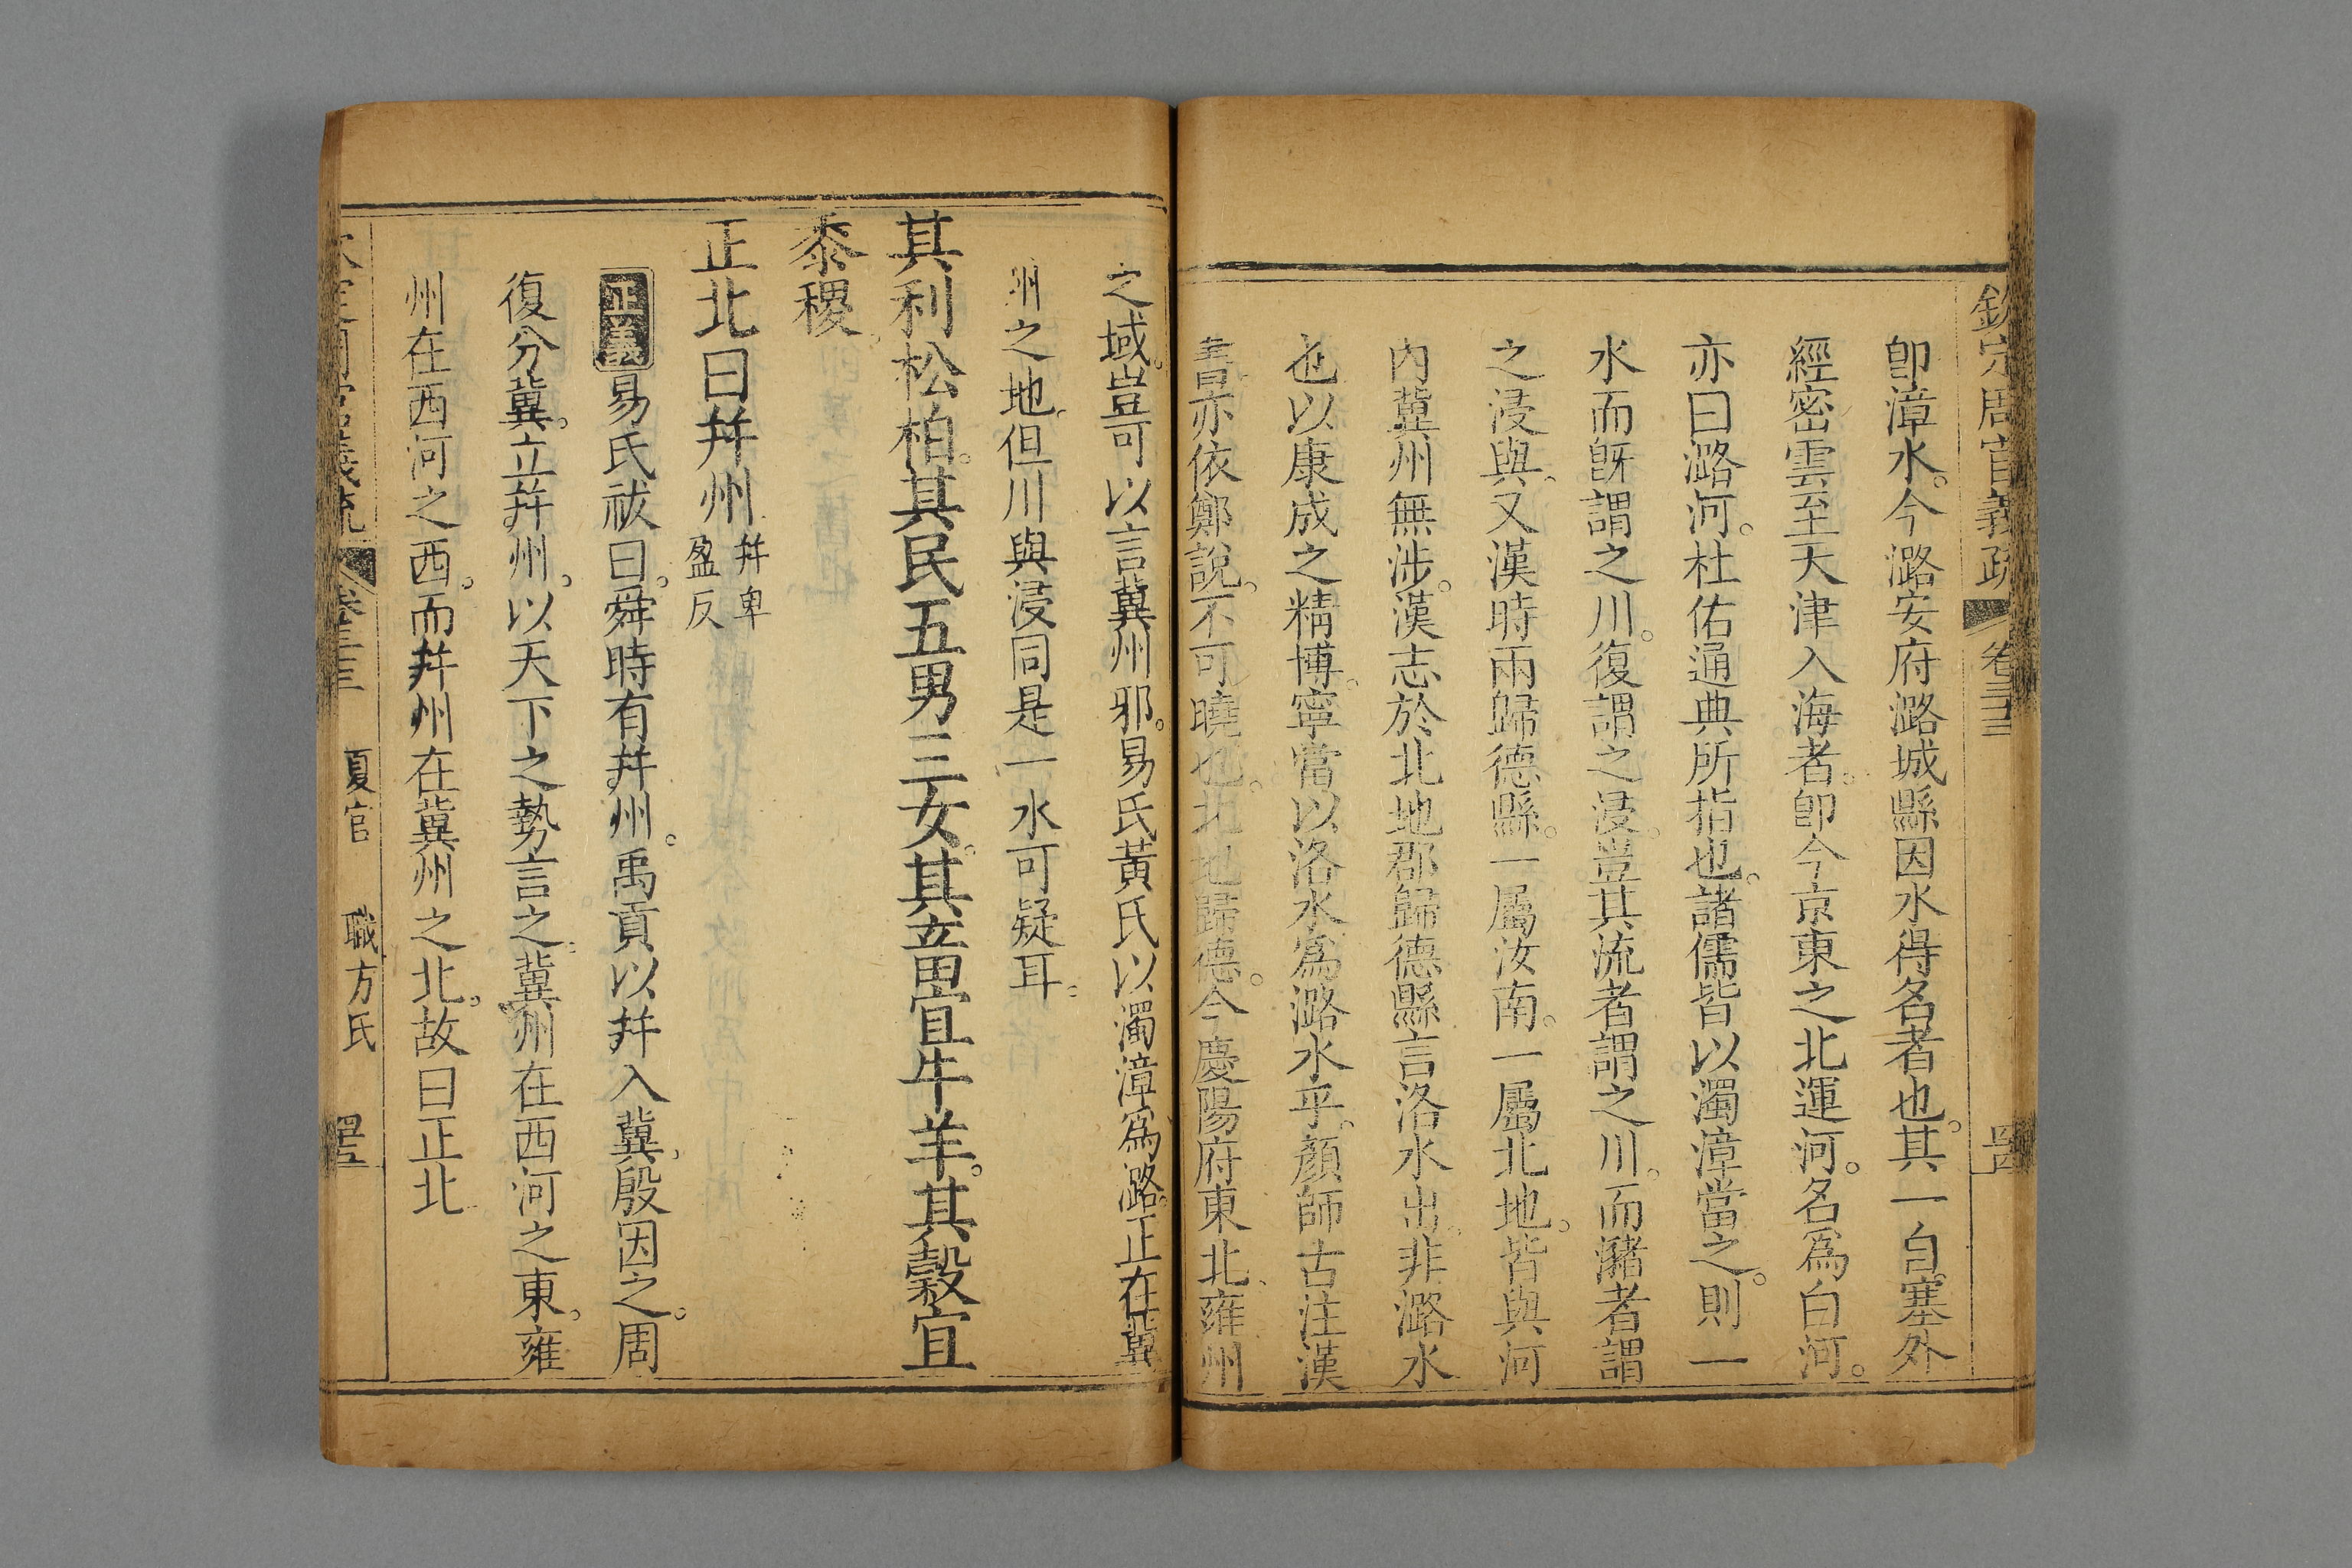 欽定周官義疏 卷三十三 四四
卽漳水。今潞安府潞城縣因水得名者也。其一自塞外
經密雲至天津入海者。卽今京東之北運河。名爲白河。
亦曰潞河。杜佑通典所指也。諸儒皆以濁漳當之。則一
水而旣謂之川。復謂之浸。豈其流者謂之川。而瀦者謂
之浸與。又漢時兩歸德縣。一屬汝南。一屬北地。皆與河
內冀州無涉。漢志於北地郡歸德縣言洛水出。非潞水
也。以康成之精博。寧當以洛水爲潞水乎。顏師古注漢
書。亦依鄭說。不可曉也。北地歸德。今慶陽府東北。雍州
之域。豈可以言冀州邪。易氏黃氏以濁漳爲潞。正在冀
州之地。但川與浸同是一水可疑耳。
其利松柏。其民五男三女。其畜宜牛羊。其穀宜
黍稷。
正北曰幷州 幷卑盈反
正義 易氏祓曰。舜時有幷州。禹貢以幷入冀。殷因之。周
復分冀。立幷州。以天下之勢言之。冀州在西河之東。雍
州在西河之西。而幷州在冀州之北。故曰正北
周官義疏 卷三十三 夏官 職方氏 四五